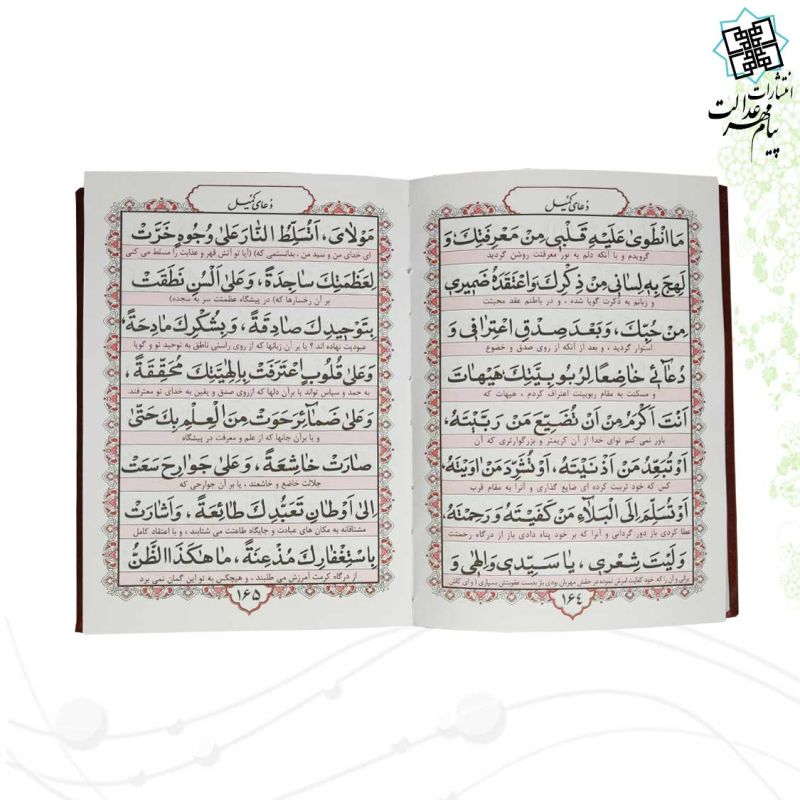 انتشارات
پیام مهر عدالت
دعای کمیل
مَا انْطَوىٰ عَلَيْهِ قَلْبي مِنْ مَعْرِفَتِكَ وَ
گرویدم و با آنکه دلم به نور معرفتت روشن گردید
لَهِجَ بِهِ لِساني مِنْ ذِكْرِكَ وَاعْتَقَدَهُ ضَميري
و زبانم به ذکرت گویا شده ، و در باطنم عقد محبتت
مِنْ حُبِّكَ، وَبَعْدَ صِدْقِ اعْتِرافي وَ
استوار گردید ، و بعد از آنکه از روی صدق و خضوع
دُعائي خاضِعًا لِرُبُوبِيَّتِكَ هَيْهاتَ
و مسکنت به مقام ربوبیتت اعتراف کردم ، هیهات که
اَنْتَ اَكْرَمُ مِنْ اَنْ تُضَيِّعَ مَنْ رَبَّيْتَهُ،
باور نمی کنم توای خدا از آن کریمتر و بزرگوارتری که آن
اَوْ تُبَعِّدَ مَنْ اَدْنَيْتَهُ، اَوْ تُشَرِّدَ مَنْ اوَيْتَهُ،
کس که خود تربیت کرده ای ضایع گذاری و آنرا به مقام قرب
اَوْ تُسَلِّمَ اِلَى الْبَلاءِ مَنْ كَفَيْتَهُ وَ رَحِمْتَهُ،
عطا کردی باز دور گردانی و آنرا که بر خود پناه دادی باز از درگاه رحمتت
وَ لَيْتَ شِعْري، يا سَيِّدي وَ اِلهي وَ
برانی و آن را که خود کفایت امرش نموده در حقش مهربان بودی باز بدست عقوبتش بسپاری ( و ای کاش
١٦٤
دعای کمیل
مَوْلايَ، اَتُسَلِّطُ النّارَ عَلىٰ وُجُوهٍ خَرَّتْ
ای خدای من و سید من ، بدانستمی که) (آیا تو آتش قهر و عذابت را مسلط می کنی
لِعَظَمَتِكَ ساجِدَةً، وَعَلىٰ اَلْسُنٍ نَطَقَتْ
بر آن رخسارها که) در پیشگاه عظمتت سر به سجده)
بِتَوْحيدِكَ صادِقَةً، وَبِشُكْرِكَ مادِحَةً،
عبودیت نهاده اند ؟ یا بر آن زبانها که از روی راستی ناطق به توحید تو و گویا
وَعَلىٰ قُلُوبٍ اعْتَرَفَتْ بِاِلٰهِيَّتِكَ مُحَقِّقَةً،
به حمد و سپاس تواند یا بر آن دلها که ازروی صدق و یقین به خدای تو معترفند.
وَعَلىٰ ضَمائِرَ حَوَتْ مِنَ الْعِلْمِ بِكَ حَتّىٰ
و یا برآن جانها که از علم و معرفت در پیشگاه
صارَتْ خاشِعَةً، وَعَلىٰ جَوارِحَ سَعَتْ
جلالت خاضع و خاشعند ، یا بر آن جوارحی که
اِلىٰ اَوْطانِ تَعَبُّدِكَ طائِعَةً، وَاَشارَتْ
مشتاقانه به مکان های عبادت و جایگاه طاعتت می شتابند ، و با اعتقاد کامل
بِاسْتِغْفارِكَ مُذْعِنَةً، ما هٰكَذَا الظَّنُّ
از درگاه کرمت آمرزش می طلبند ، و هیچکس به تو این گمان نمی برد
١٦٥